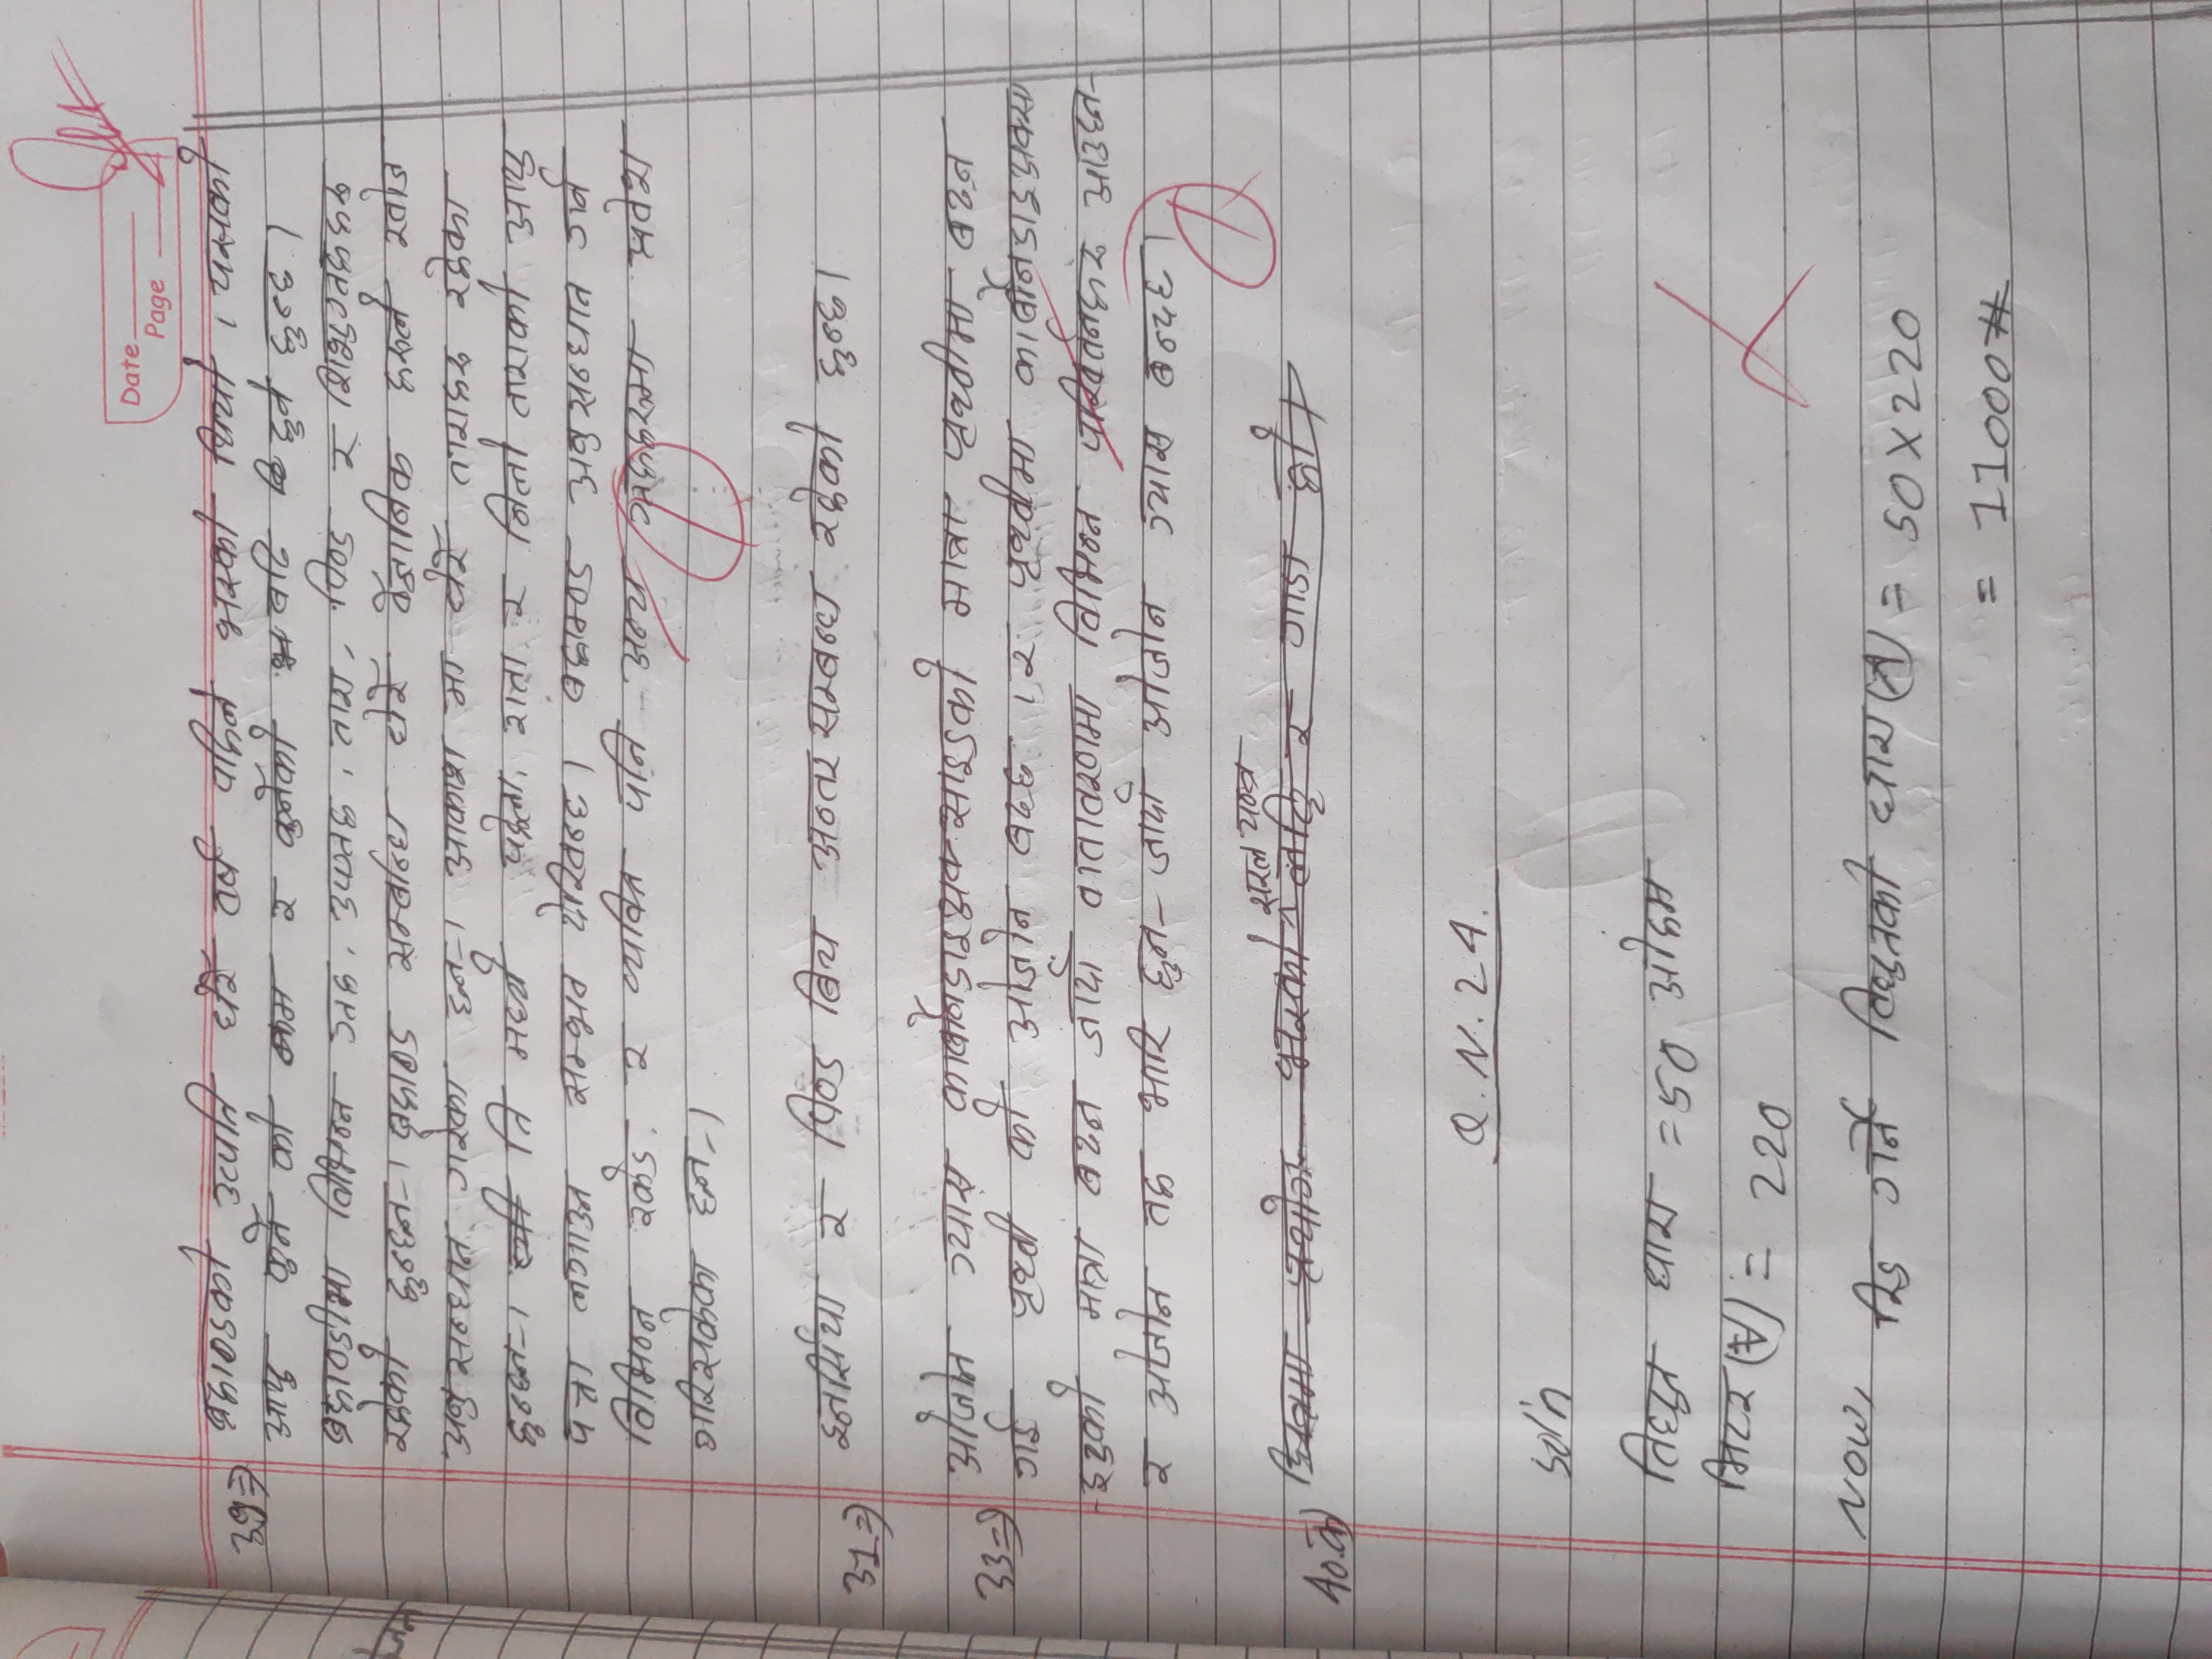 Date
Page
39⇒ ब्रह्माण्डको उत्पति धेरै वर्ष पहिले भएको थियो । यसको
आयु कुनै को कम र कुनैको बढि हुने हुन्छ ।
ब्रह्माण्डीमा विभिन्न ग्रह, उपग्रह, तारा, पिण्ड र शिशुग्रहहरु
रहेको हुन्छन् । ब्रह्माण्ड सम्बन्धि धेरै वैज्ञानिक हरुले खोज
अनुसन्धान गरेका छन् । आकाश मा धेरै ताराहरु रहेका
हुन्छन् । ति मध्ये पहेला, राता र निलो ताराको आयु
पत्ता लगाउन सम्भव देखिन्छ । ब्रह्माण्ड अनुसन्धान गर्न
विभिन्न रकेट र व्यक्ति पनि अन्य ग्रहहरुमा प्रवेश
गरिसकेका छन् ।
1
31⇒ इनर्सिया र पिण्ड बिच अन्तर सम्बन्ध रहेको हुन्छ ।
33⇒ ओजोन ग्यास कार्बोनडाइअक्साइडको मात्रा पृथ्वीमा बढ्न
गई पृथ्वी को ओजोन बढ्छ । र पृथ्वीमा कार्बोनडाइअक्सा
इडको मात्रा बढ्न जादाँ वातावरणमा विभिन्न परिवर्तनहरु आउछन्
र ओजोन तह भारि हुन जादाँ ओजोन ग्यास बन्दछ ।
1
40.क) चित्रमा प्रयोग भएको सरल यन्त्र र गाडा हो ।
Q.N.24.
sol'n
विधुत धारा = 50 ओहम
मिटर (v) = 220
Now, रिड गर्ने विधुतको धारा (A) = 50 X 220
= 11000 #